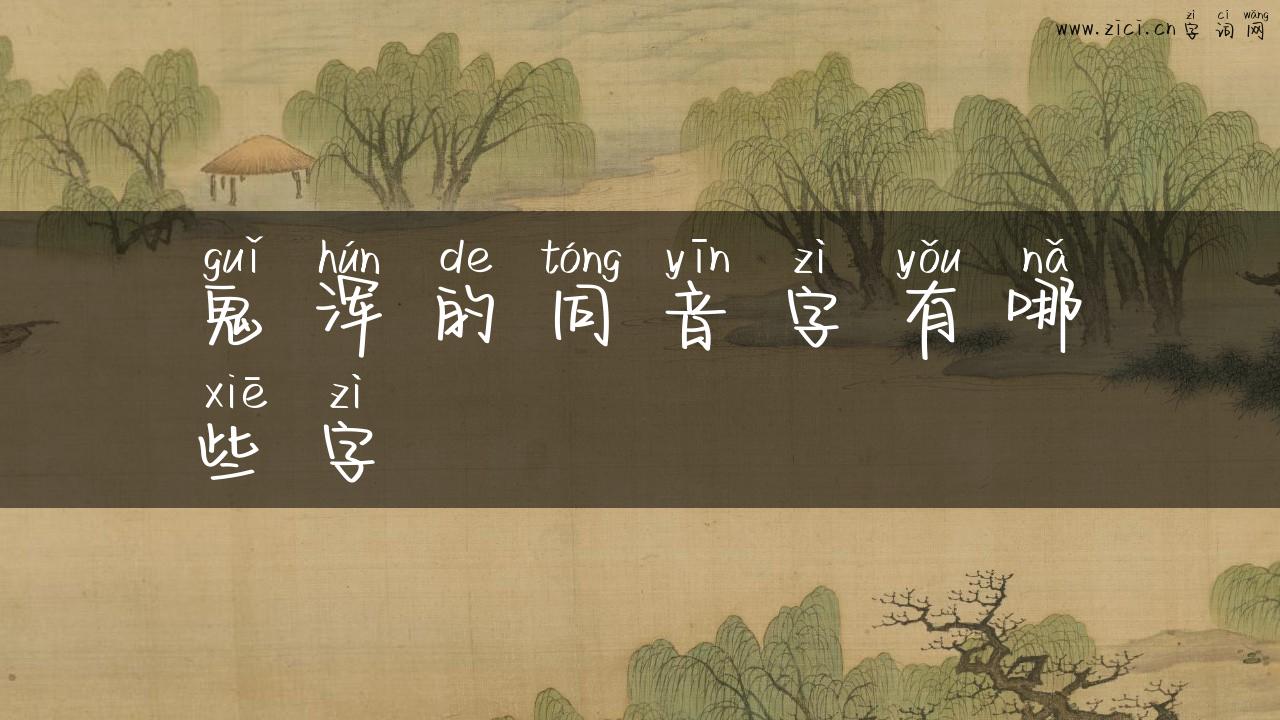 zì cí wǎng
www.zici.cn 字词网
guǐ hún de tóng yīn zì yǒu nǎ
鬼浑的同音字有哪
xiē zì
些字